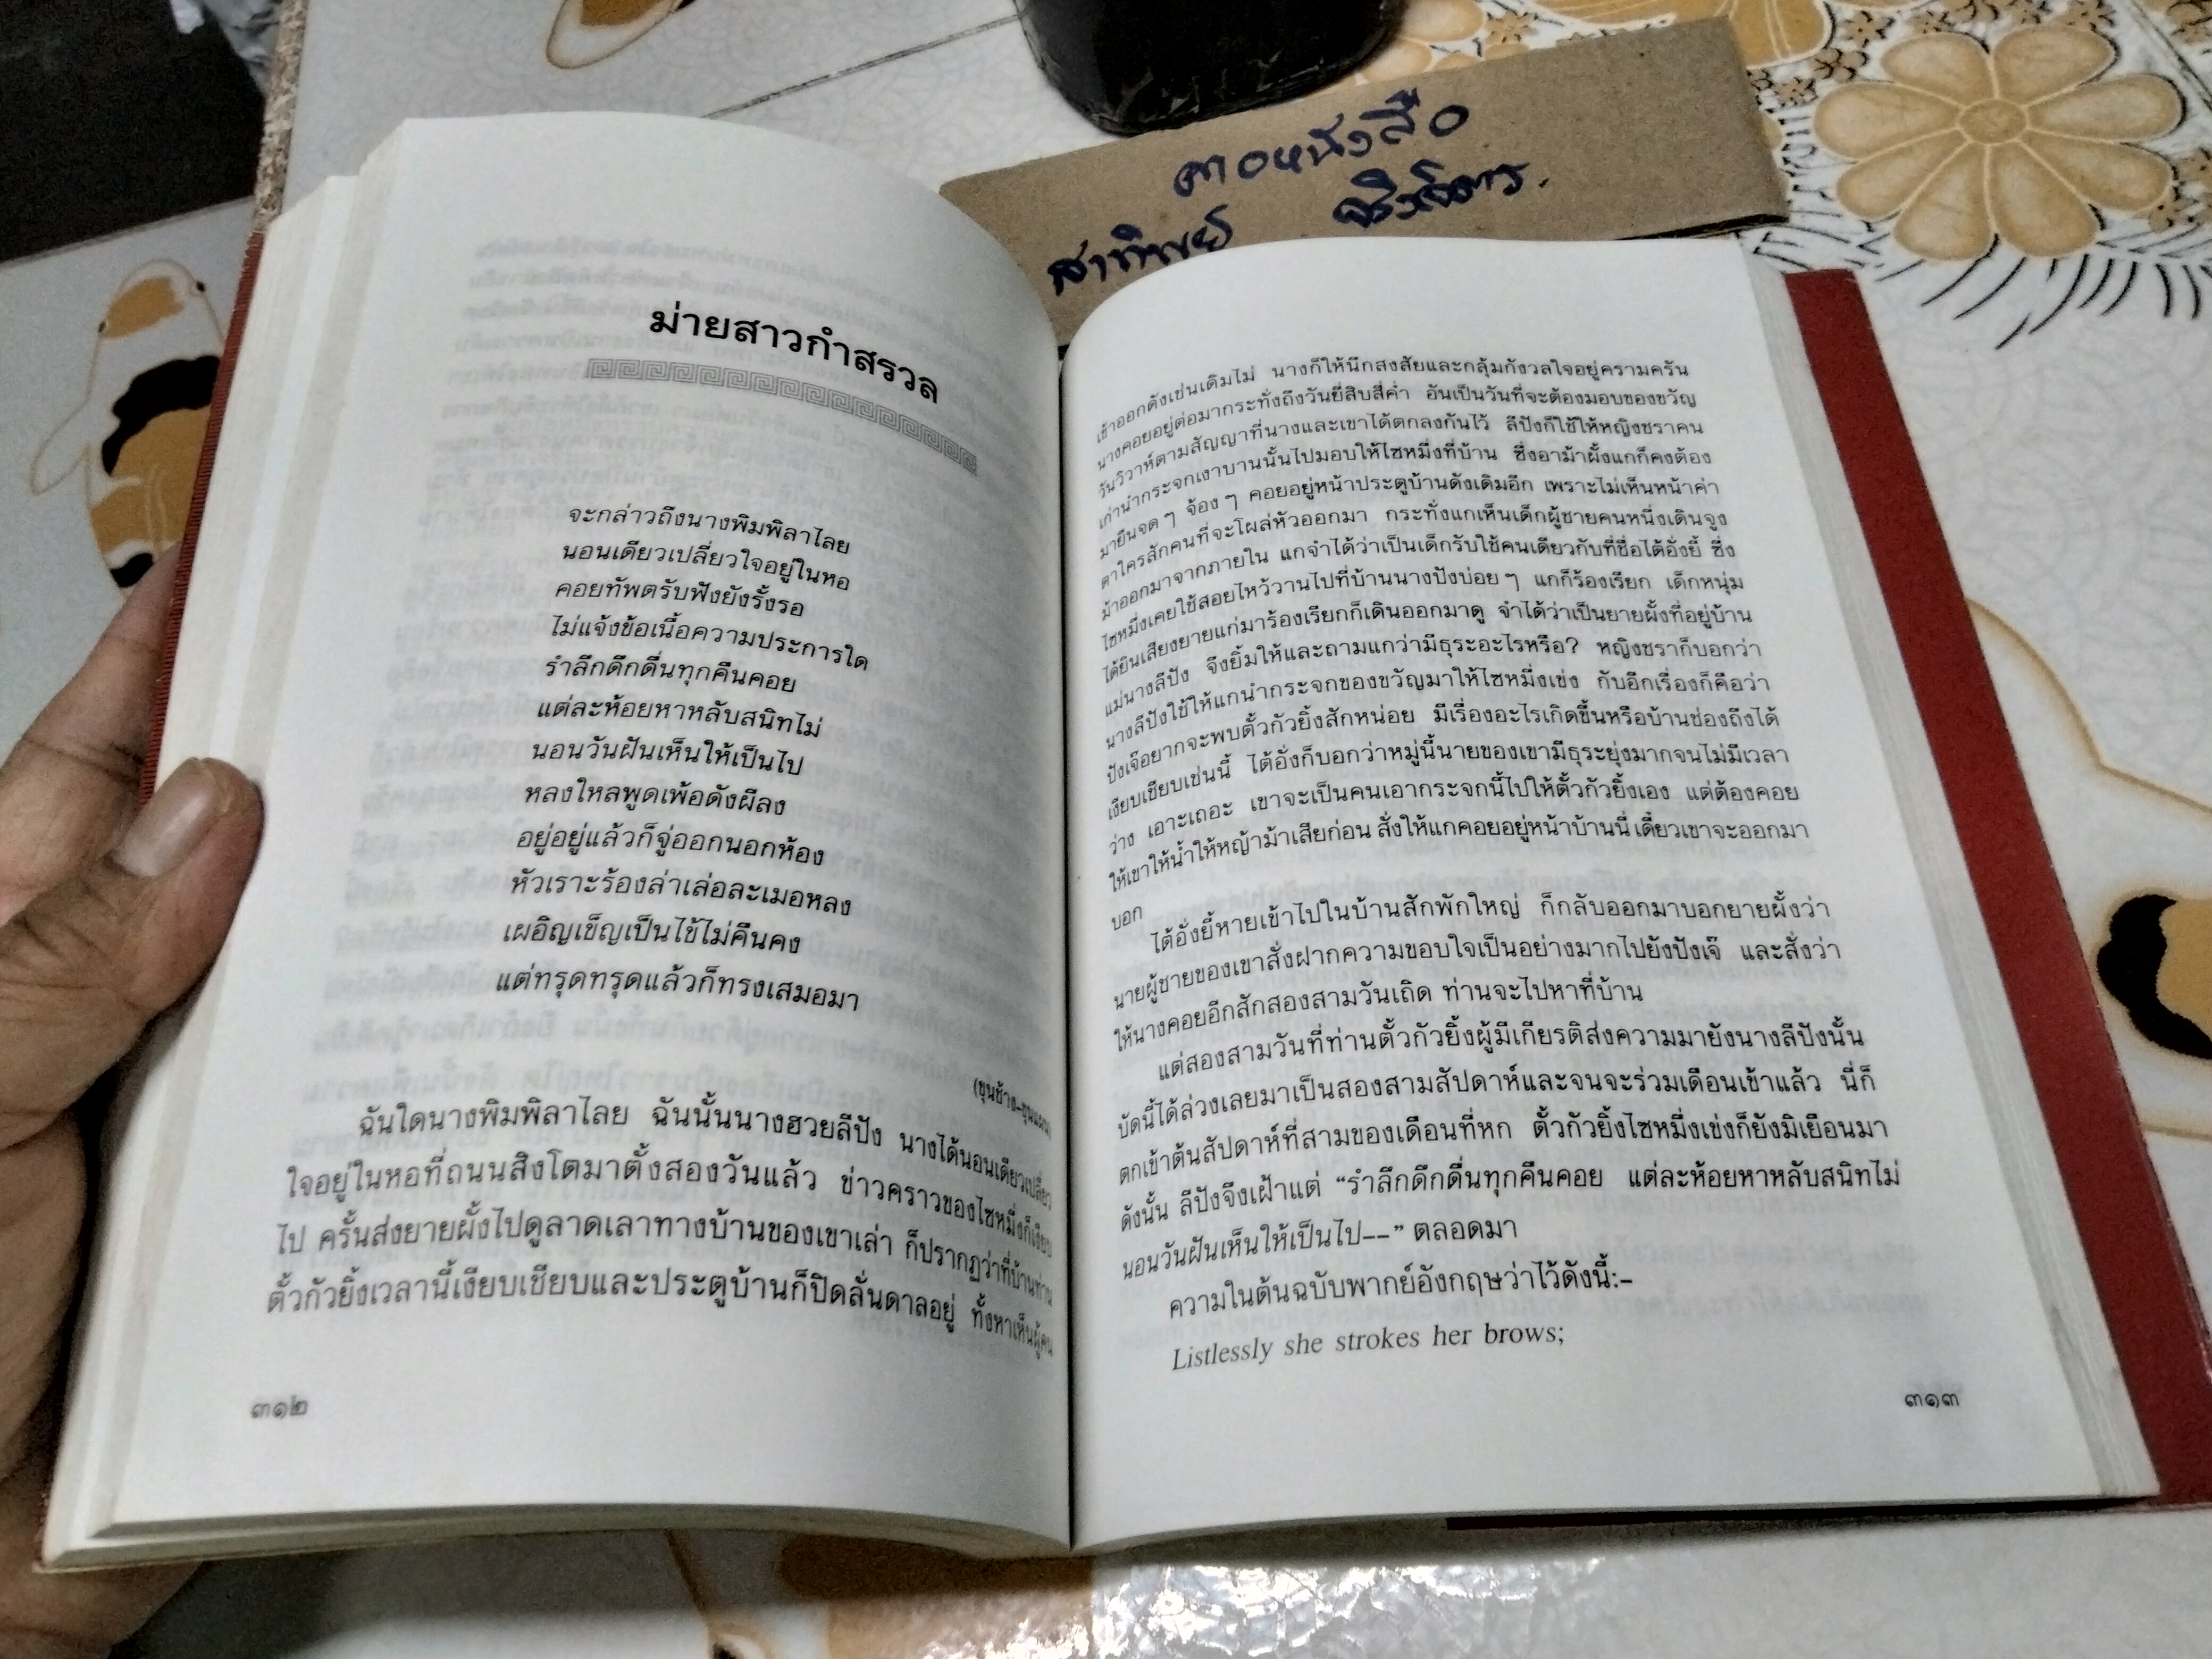 คอหนังสือ
สาทิพย์
ม่ายสาวกำสรวล
จะกล่าวถึงนางพิมพิลาไลย
นอนเดียวเปลี่ยวใจอยู่ในหอ
คอยทัพตรับฟังยังรั้งรอ
ไม่แจ้งข้อเนื้อความประการใด
รำลึกดึกดื่นทุกคืนคอย
แต่ละห้อยหาหลับสนิทไม่
นอนวันฝันเห็นให้เป็นไป
หลงใหลพูดเพ้อดังผีลง
อยู่อยู่แล้วก็จู่ออกนอกห้อง
หัวเราะร้องล่าเล่อละเมอหลง
เผอิญเข็ญเป็นไข้ไม่คืนคง
แต่ทรุดทรุดแล้วก็ทรงเสมอมา
(ขุนช้าง-ขุนแผน)
ฉันใดนางพิมพิลาไลย ฉันนั้นนางฮวยลีปัง นางได้นอนเดียวเปลี่ยว
ใจอยู่ในหอที่ถนนสิงโตมาตั้งสองวันแล้ว ข่าวคราวของไซหมึ่งก็เงียบ
ไป ครั้นส่งยายผั้งไปดูลาดเลาทางบ้านของเขาเล่า ก็ปรากฏว่าที่บ้านท่าน
ตั้วกัวยิ้งเวลานี้เงียบเชียบและประตูบ้านก็ปิดลั่นดาลอยู่ ทั้งหาเห็นผู้คน
๓๑๒
เข้าออกดังเช่นเดิมไม่ นางก็ให้นึกสงสัยและกลุ้มกังวลใจอยู่ครามครัน
นางคอยอยู่ต่อมากระทั่งถึงวันยี่สิบสี่ค่ำ อันเป็นวันที่จะต้องมอบของขวัญ
วันวิวาห์ตามสัญญาที่นางและเขาได้ตกลงกันไว้ ลีปังก็ใช้ให้หญิงชราคน
เก่านำกระจกเงาบานนั้นไปมอบให้ไซหมึ่งที่บ้าน ซึ่งอาม้าผั้งแกก็คงต้อง
มายืนจด ๆ จ้อง ๆ คอยอยู่หน้าประตูบ้านดังเดิมอีก เพราะไม่เห็นหน้าค่า
ตาใครสักคนที่จะโผล่หัวออกมา กระทั่งแกเห็นเด็กผู้ชายคนหนึ่งเดินจูง
ม้าออกมาจากภายใน แกจำได้ว่าเป็นเด็กรับใช้คนเดียวกับที่ชื่อได้อั่งยี้ ซึ่ง
ไซหมึ่งเคยใช้สอยไหว้วานไปที่บ้านนางปังบ่อย ๆ แกก็ร้องเรียก เด็กหนุ่ม
ได้ยินเสียงยายแก่มาร้องเรียกก็เดินออกมาดู จำได้ว่าเป็นยายผั้งที่อยู่บ้าน
แม่นางลีปัง จึงยิ้มให้และถามแกว่ามีธุระอะไรหรือ? หญิงชราก็บอกว่า
นางลีปังใช้ให้แกนำกระจกของขวัญมาให้ไซหมึ่งเข่ง กับอีกเรื่องก็คือว่า
ปังเจ๊อยากจะพบตั้วกัวยิ้งสักหน่อย มีเรื่องอะไรเกิดขึ้นหรือบ้านช่องถึงได้
เงียบเชียบเช่นนี้ ได้อั่งก็บอกว่าหมู่นี้นายของเขามีธุระยุ่งมากจนไม่มีเวลา
ว่าง เอาะเถอะ เขาจะเป็นคนเอากระจกนี้ไปให้ตั้วกัวยิ้งเอง แต่ต้องคอย
ให้เขาให้น้ำให้หญ้าม้าเสียก่อน สั่งให้แกคอยอยู่หน้าบ้านนี่ เดี๋ยวเขาจะออกมา
บอก
ได้อั่งยี้หายเข้าไปในบ้านสักพักใหญ่ ก็กลับออกมาบอกยายผั้งว่า
นายผู้ชายของเขาสั่งฝากความขอบใจเป็นอย่างมากไปยังปังเจ๊ และสั่งว่า
ให้นางคอยอีกสักสองสามวันเถิด ท่านจะไปหาที่บ้าน
แต่สองสามวันที่ท่านตั้วกัวยิ้งผู้มีเกียรติส่งความมายังนางลีปังนั้น
บัดนี้ได้ล่วงเลยมาเป็นสองสามสัปดาห์และจนจะร่วมเดือนเข้าแล้ว นี่ก็
ตกเข้าต้นสัปดาห์ที่สามของเดือนที่หก ตั้วกัวยิ้งไซหมึ่งเข่งก็ยังมิเยือนมา
ดังนั้น ลีปังจึงเฝ้าแต่ “รำลึกดึกดื่นทุกคืนคอย แต่ละห้อยหาหลับสนิทไม่
นอนวันฝันเห็นให้เป็นไป--” ตลอดมา
ความในต้นฉบับพากย์อังกฤษว่าไว้ดังนี้:-
Listlessly she strokes her brows;
๓๑๓